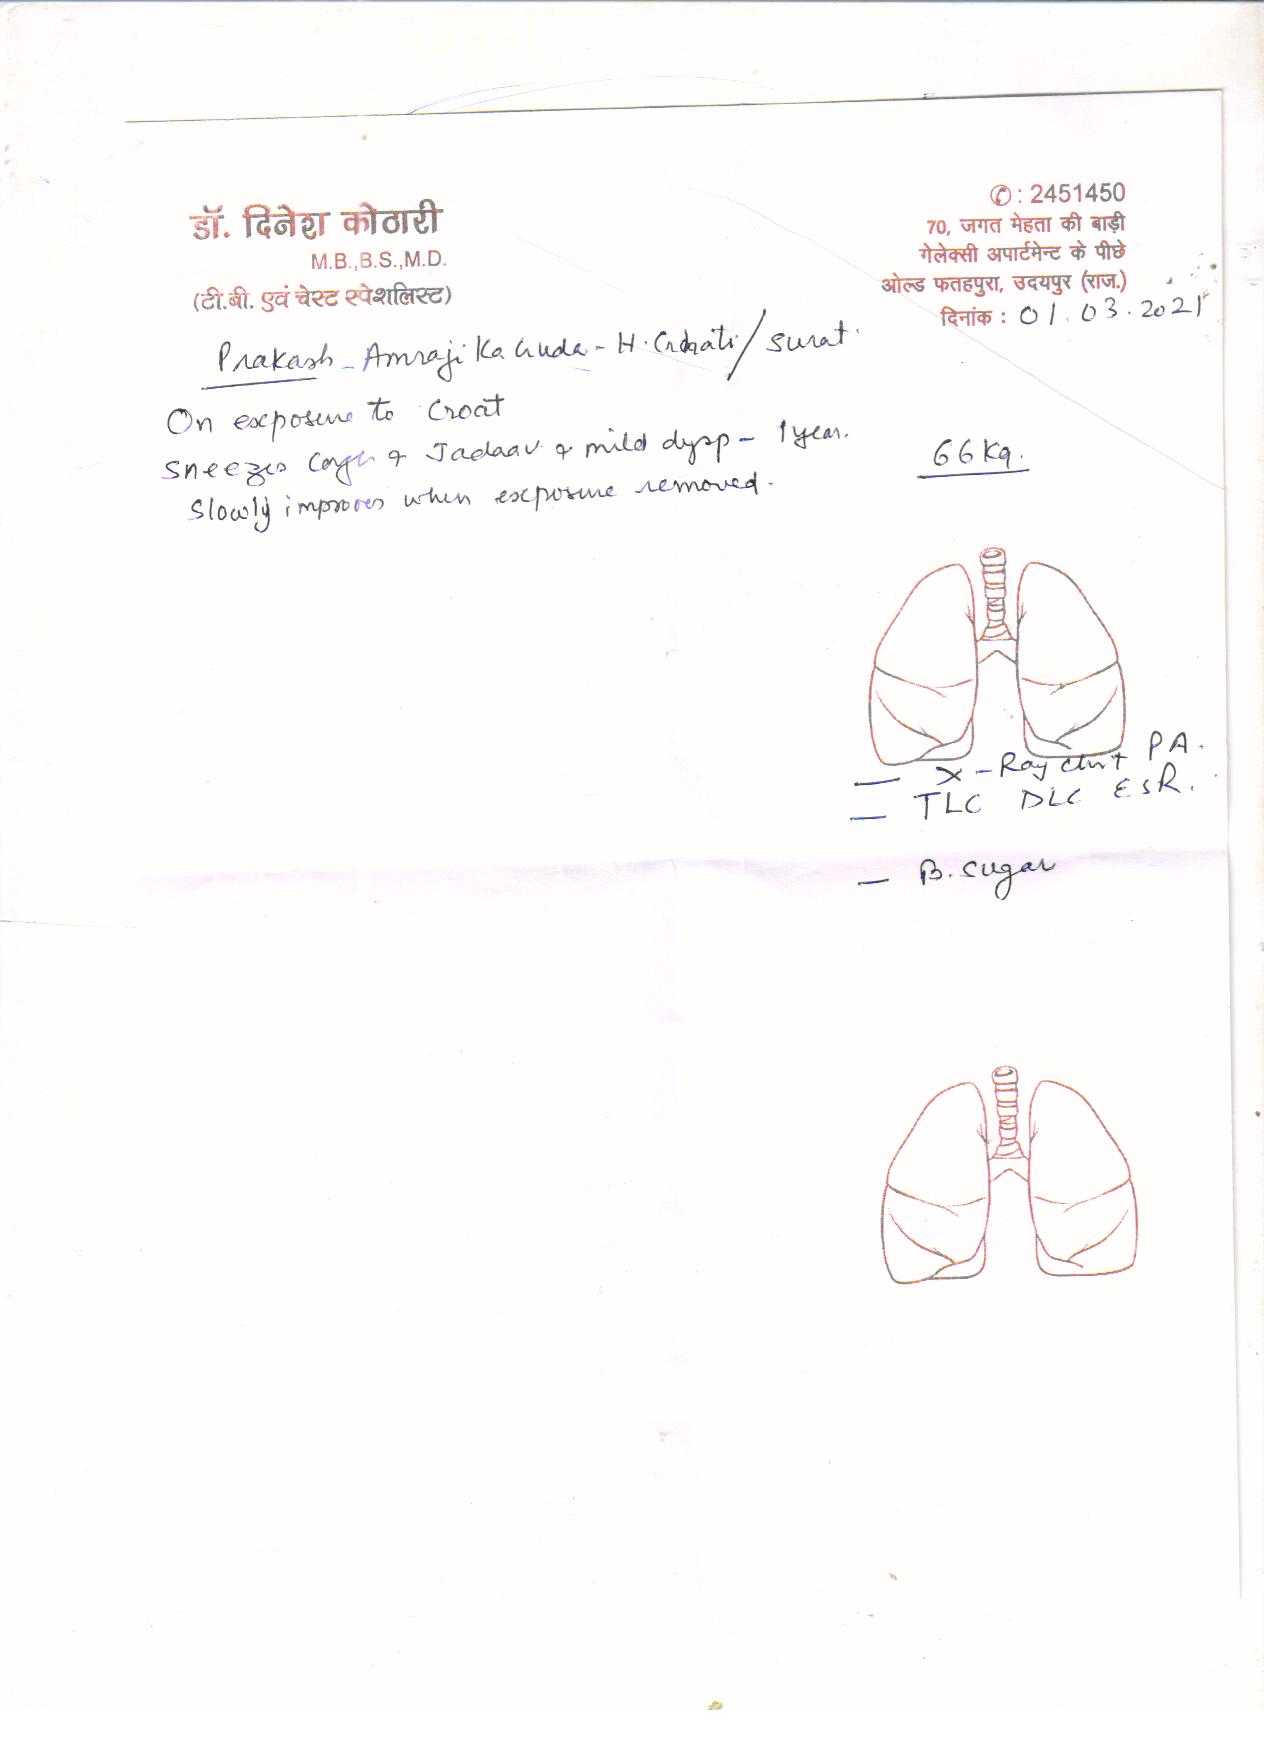 डॉ. दिनेश कोठारी
M.B.,B.S.,M.D.
(टी.बी. एवं चेस्ट स्पेशलिस्ट)
✆ : 2451450
70, जगत मेहता की बाड़ी
गेलेक्सी अपार्टमेन्ट के पीछे
ओल्ड फतहपुरा, उदयपुर (राज.)
दिनांक : 01.03.2021
Prakash - Amraji Ka Guda - H. / Surat
On exposure to
Sneezes Cough & & mild dysp - 1 year.
Slowly improves when exposure removed.
66 Kg.
— X-Ray Chest PA.
— TLC DLC ESR.
— B. Sugar